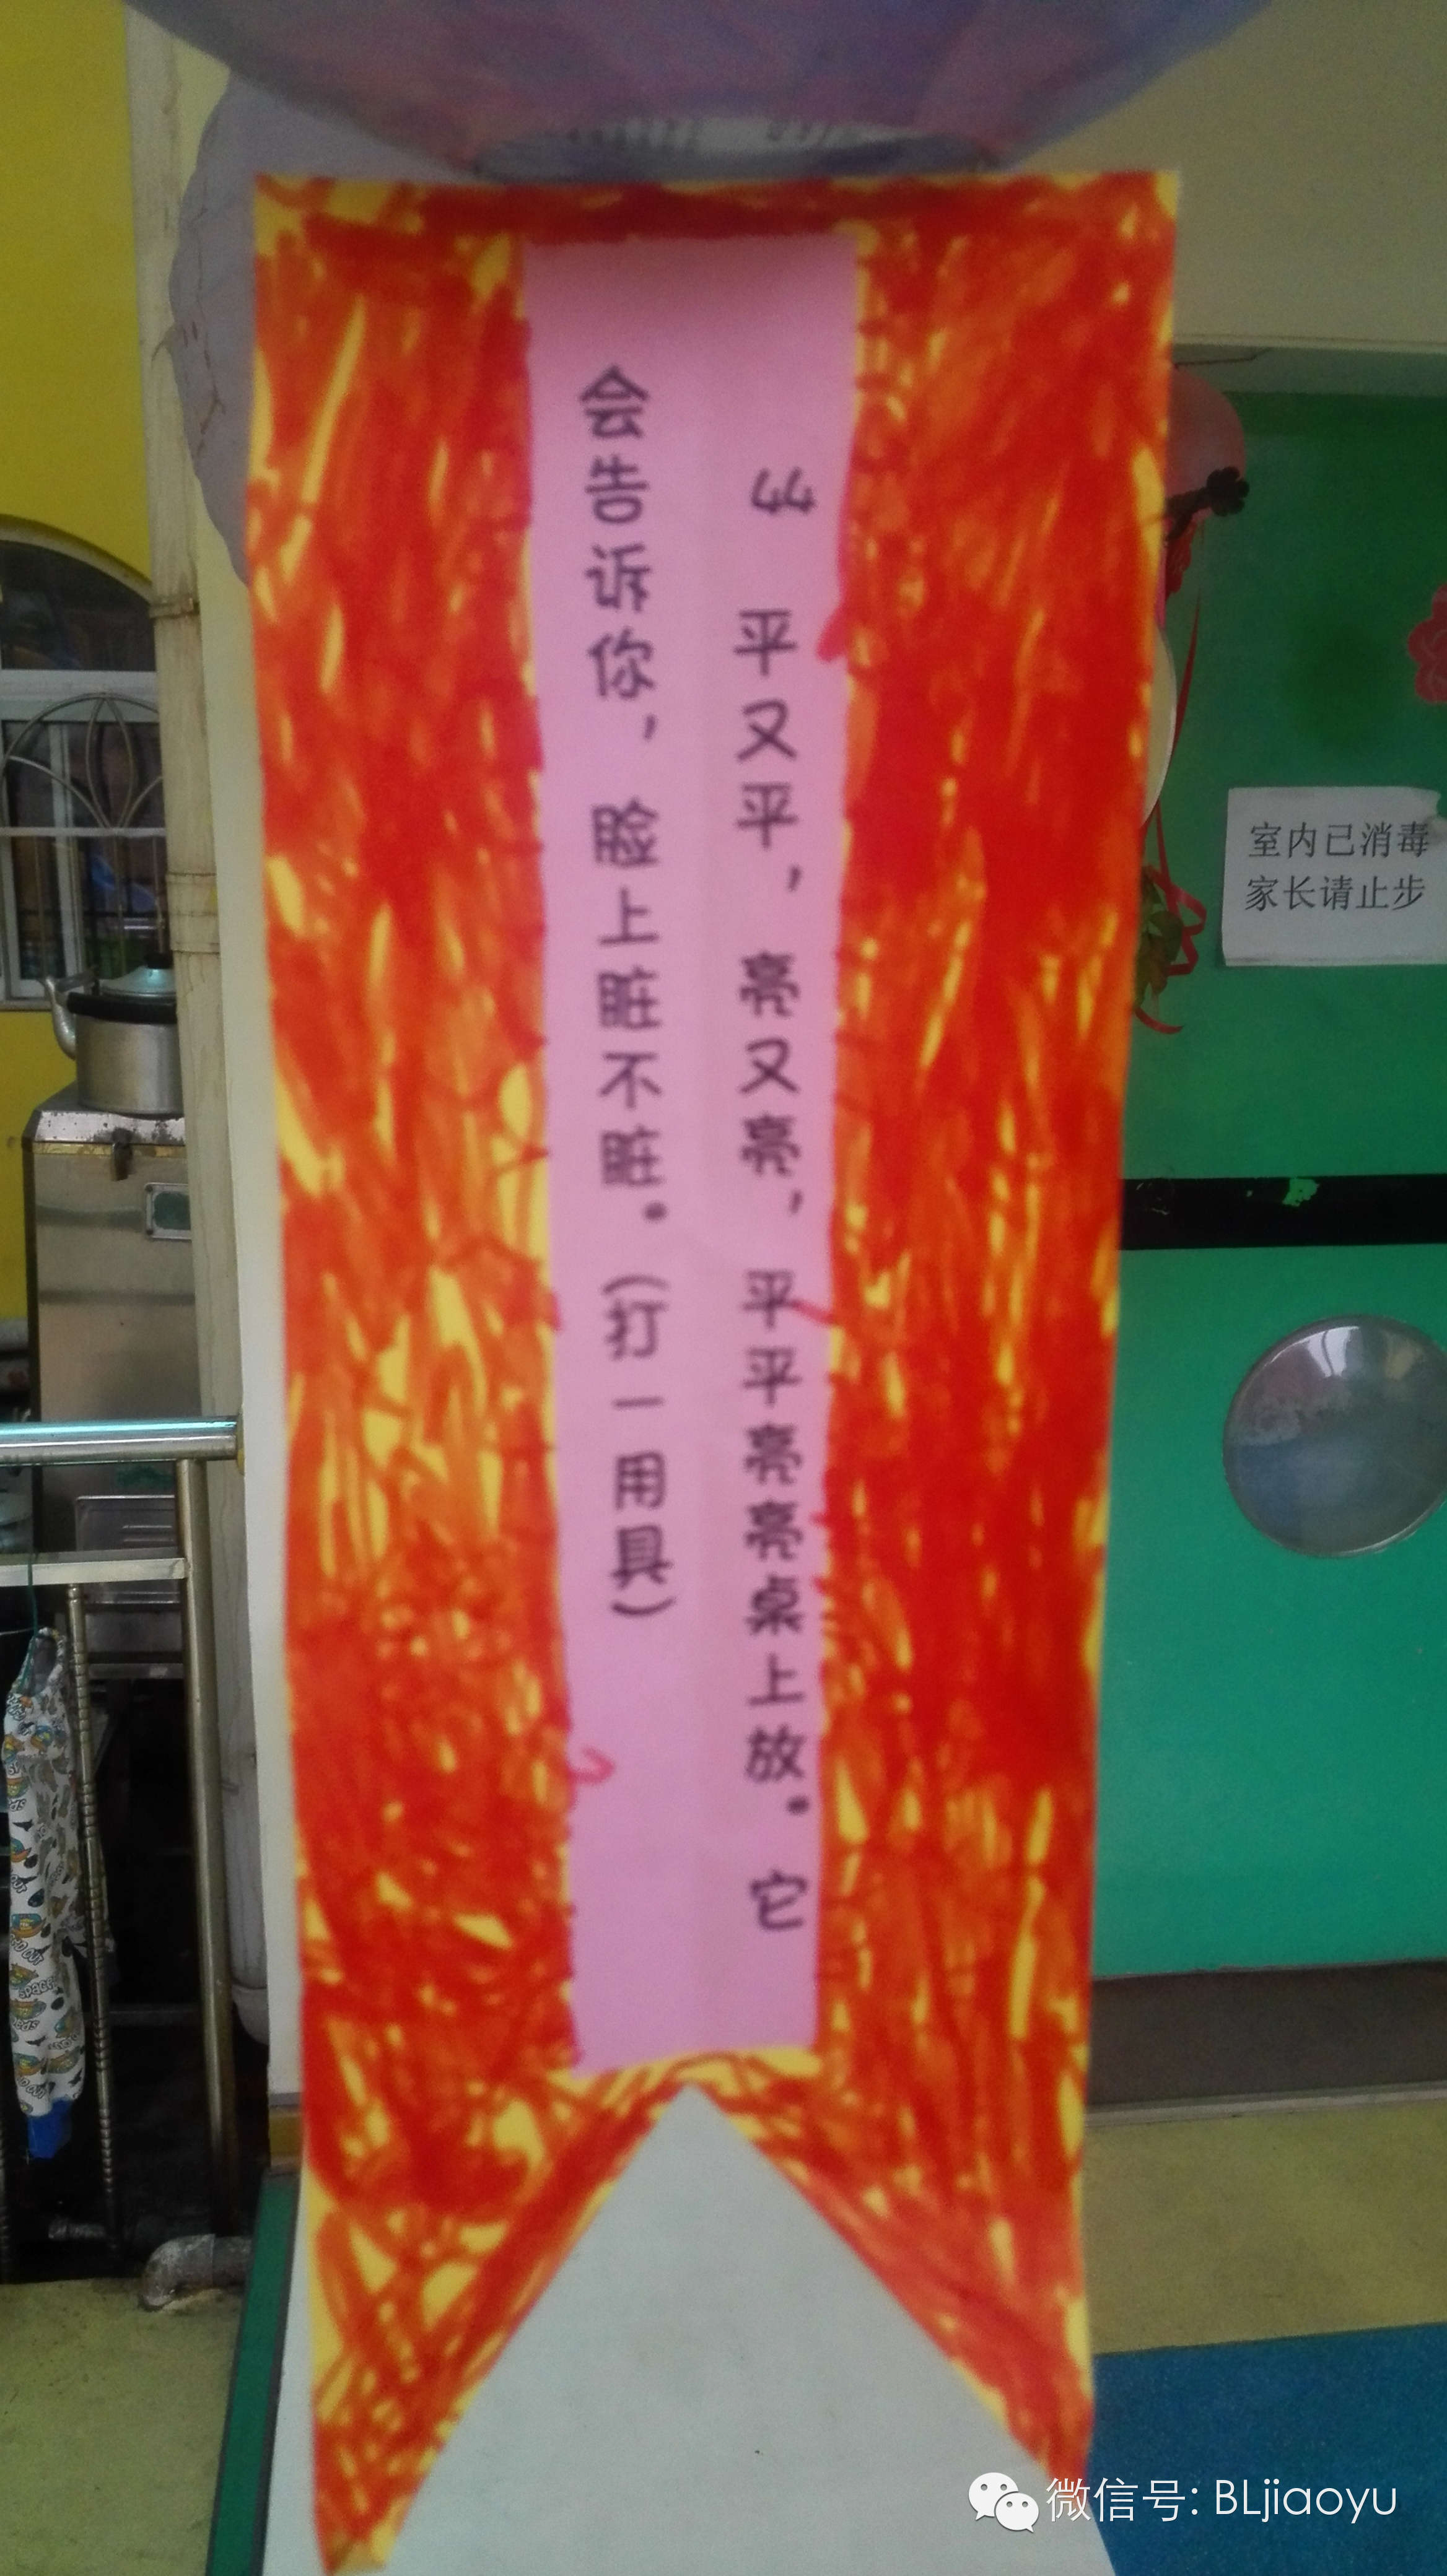 44 平又平，亮又亮，平平亮亮桌上放。它
会告诉你，脸上脏不脏。（打一用具）
室内已消毒
家长请止步
微信号: BLjiaoyu